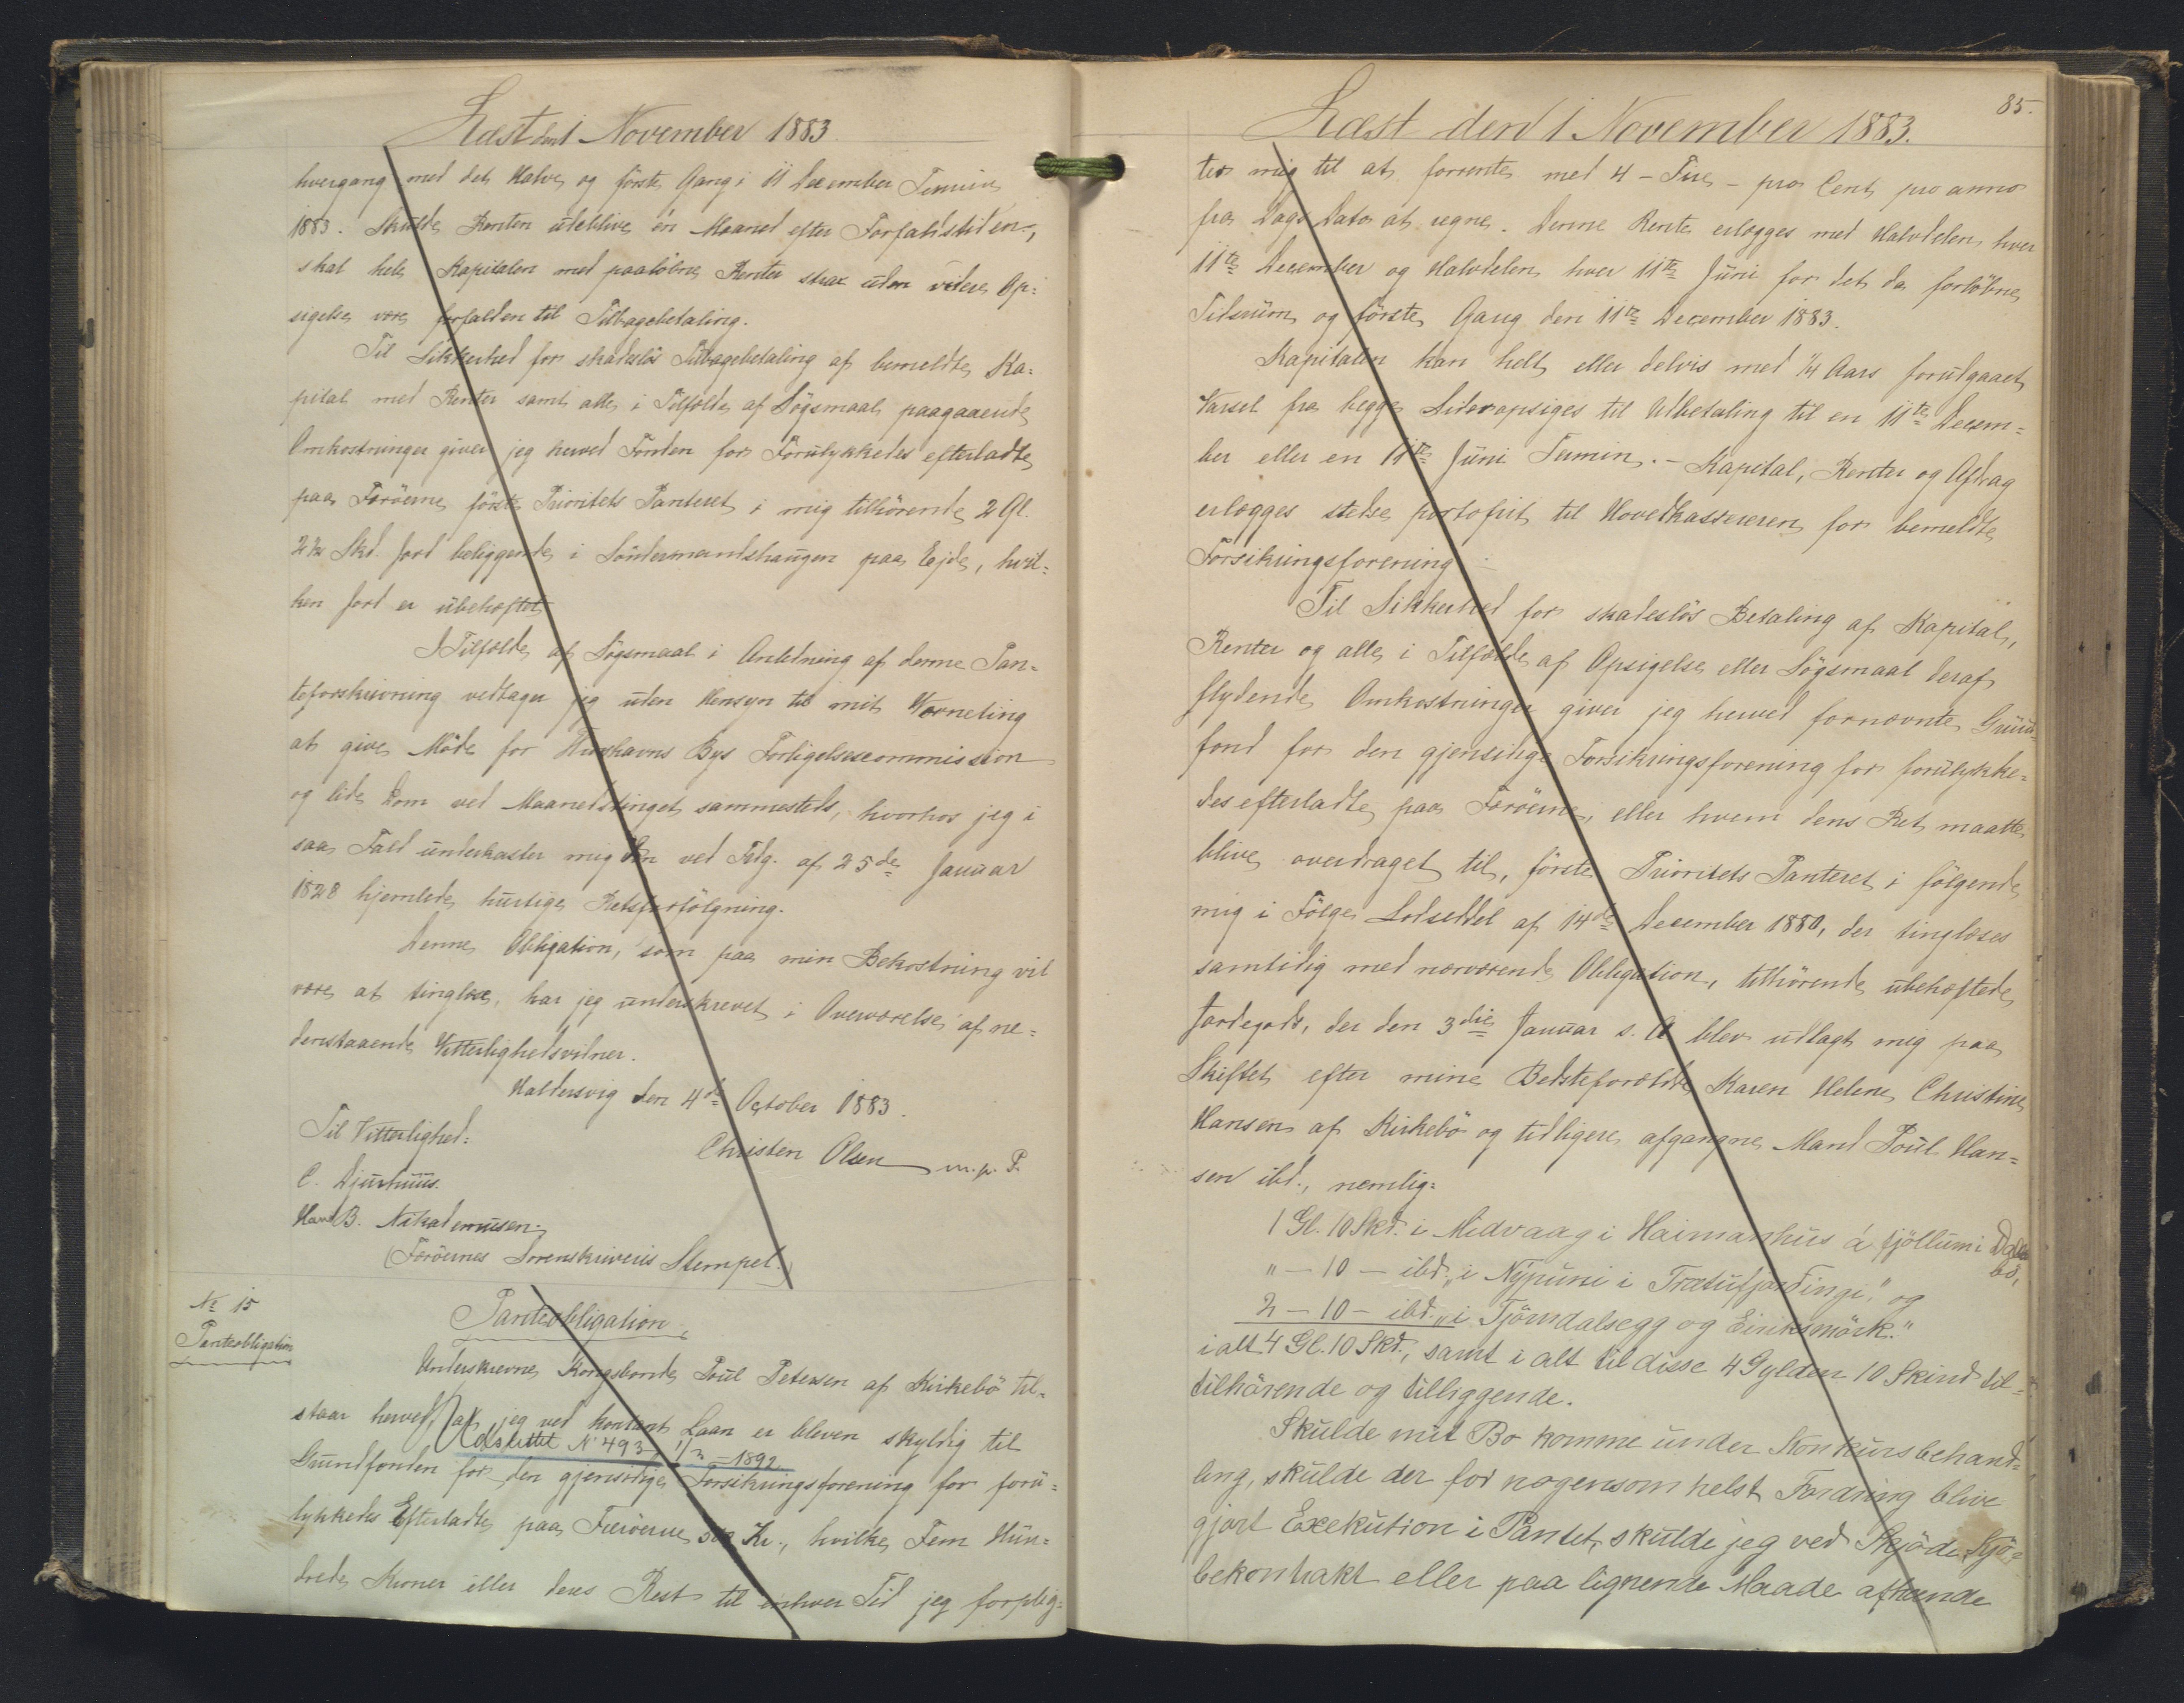 Læst den 1 November 1883.
hvergang med det Halve og første Gang i 11 December Termin
1883. Skulde Renten udeblive én Maaned efter Forfaldstiden,
skal hele Kapitalen med paaløbne Renter strax uden videre Op-
sigelse være forfalden til Tilbagebetaling.
Til Sikkerhed for skadesløs Tilbagebetaling af bemeldte Ka-
pital med Renter samt alle i Tilfælde af Søgsmaal paagaaende
Omkostninger giver jeg herved Fonden for Forulykkedes efterladte
paa Færöerne første Prioritets Panteret i mig tilhørende 2 Gl.
2½ Skd. Jord beliggende i Söndermandshaugen paa Ejde, hvil-
ken Jord er ubehæftet
I Tilfælde af Søgsmaal i Anledning af denne Pan-
teforskrivning vedtager jeg uden Hensyn til mit Værneting
at give Møde for Thorshavns Bys Forligelsescommission
og lide Dom ved Maanedstinget sammesteds, hvorhos jeg i
saa Fald underkaster mig den ved Frdg. af 25de Januar
1828 hjemlede hurtige Retsforfølgning.
Denne Obligation, som paa min Bekostning vil
være at tinglæse, har jeg underskrevet i Overværelse af ne-
denstaaende Vitterlighedsvidner.
Haldersvig den 4de October 1883.
Til Vitterlighed:
Christen Olsen m. p. P.
C. Djurhuus.
Hans B. Nikodemussen.
(Færöernes Sorenskriveris Stempel.)
№ 15
Panteobligation
Panteobligation
Underskrevne Kongsbonde Poul Petersen af Kirkebø til-
staar herved, at jeg ved kontant Laan er bleven skyldig til
Udslettet N 493 1/2 - 1892
Grundfonden for den gjensidige Forsikringsforening for foru-
lykkedes Efterladte paa Færöerne 500 Kr., hvilke Fem Hun-
drede Kroner eller deres Rest til enhver Tid jeg forplig-
85.
Læst den 1 November 1883.
ter mig til at forrente med 4 - Fire - pro Cent pro anno
fra Dags Dato at regne. Denne Rente erlægges med Halvdelen hver
11te December og Halvdelen hver 11te Juni for det da forløbne
Tidsrum og første Gang den 11te December 1883.
Kapitalen kan helt eller delvis med ¼ Aars forudgaaet
Varsel fra begge Sider opsiges til Udbetaling til en 11te Decem-
ber eller en 11te Juni Termin. - Kapital, Renter og Afdrag
erlægges stedse portofrit til Hovedkassereren for bemeldte
Forsikringsforening
Til Sikkerhed for skadesløs Betaling af Kapital,
Renter og alle i Tilfælde af Opsigelse eller Søgsmaal deraf
flydende Omkostninger giver jeg herved fornævnte Grund-
fond for den gjensidige Forsikringsforening for forulykke-
des efterladte paa Færöerne, eller hvem dens Ret maatte
blive overdraget til, første Prioritets Panteret i følgende
mig i Følge Lodseddel af 14de December 1880, der tinglæses
samtidig med nærværende Obligation, tilhørende ubehæftede
Jordegods, der den 3die Januar s. A. blev udlagt mig paa
Skiftet efter mine Bedsteforældre Karen Helene Christine
Hansen af Kirkebø og tidligere afgangne Mand Poul Han-
sen ibd., nemlig:
1 Gl. 10 Skd. i Midvaag i Haimanhús á fjöllum i Dala
bö,
" - 10 - ibd. "i Nýpuni i Trætufjordingi," og
2 - 10 - ibd. "i Tjörndalsegg og Eiriksmörk."
i alt 4 Gl. 10 Skd., samt i alt til disse 4 Gylden 10 Skind til-
tilhörende og tilliggende.
Skulde mit Bo komme under Konkursbehand-
ling, skulde der for nogensom helst Fordring blive
gjort Exekution i Pantet, skulde jeg ved Skjöde, Kjö-
bekontrakt eller paa lignende Maade afhænde